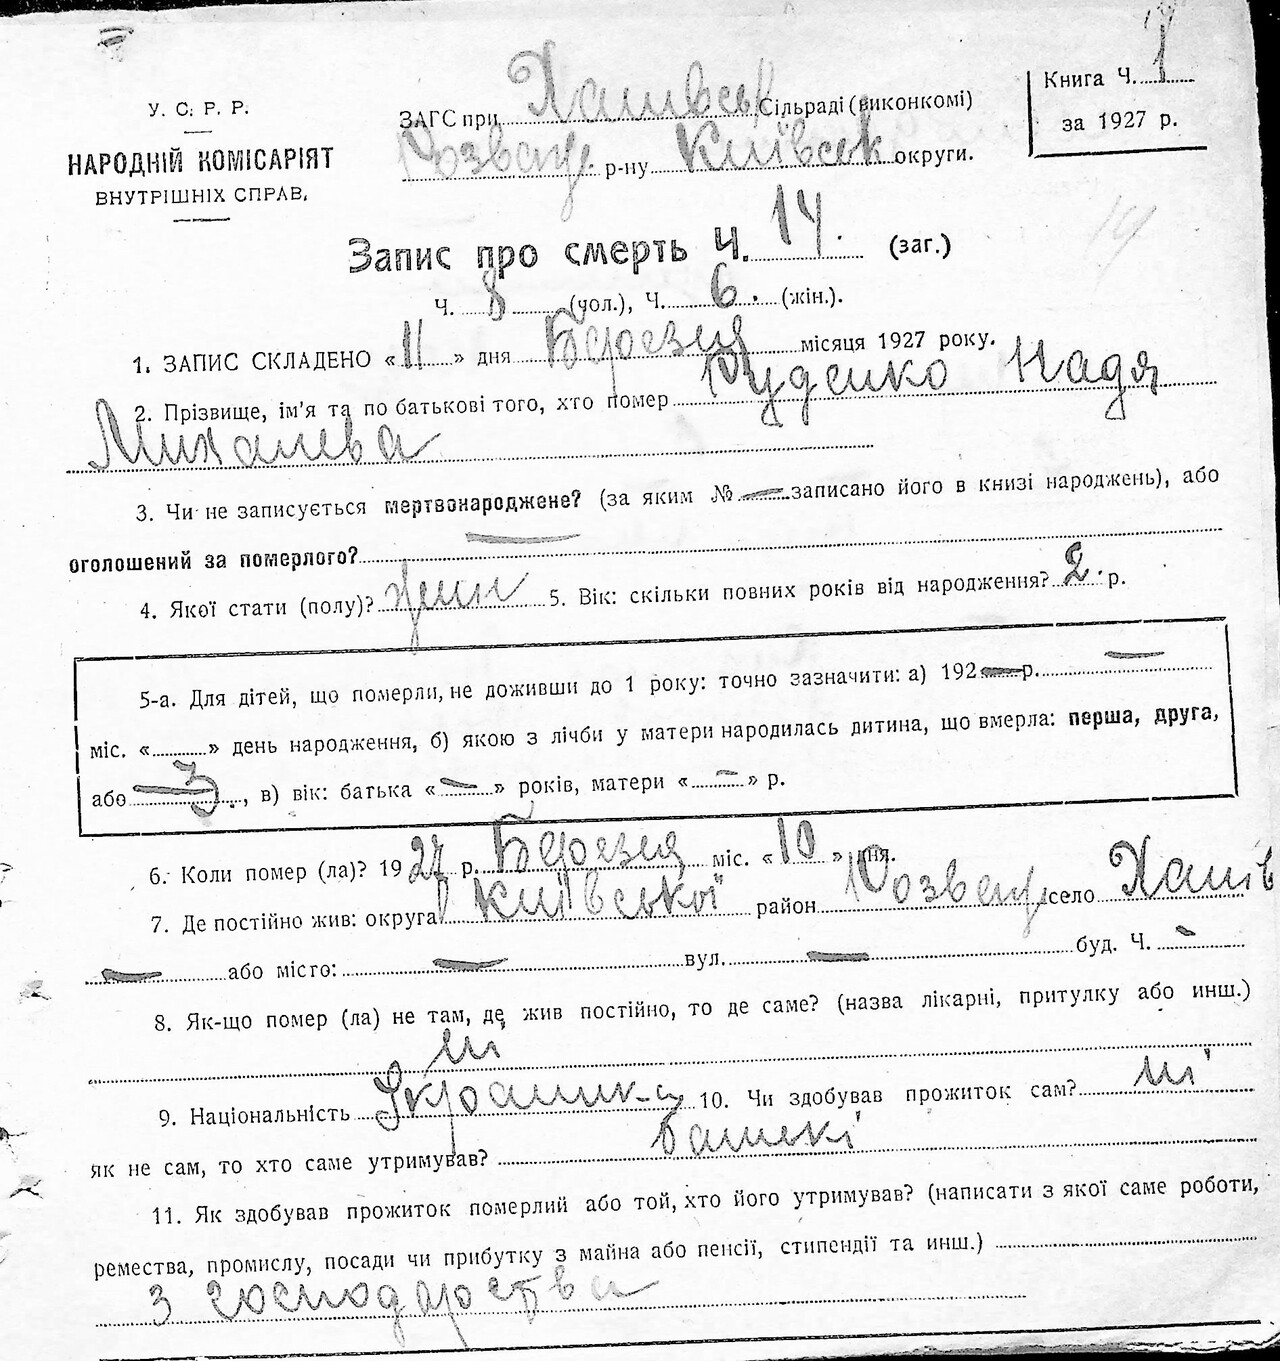 У. С. Р. Р.
НАРОДНІЙ КОМІСАРІЯТ
ВНУТРІШНІХ СПРАВ.
ЗАГС при Хапивськ Сільраді (виконкомі)
Розваж. р-ну Київськ округи.
Книга Ч. 1
за 1927 р.
Запис про смерть Ч. 14. (заг.)
Ч. 8 (чол.), Ч. 6. (жін.).
1. ЗАПИС СКЛАДЕНО « 11 » дня Березня місяця 1927 року.
2. Прізвище, ім'я та по батькові того, хто помер Руденко Надя
Михалева
3. Чи не записується мертвонароджене? (за яким № — записано його в книзі народжень), або
оголошений за померлого? —
4. Якої стати (полу)? жин 5. Вік: скільки повних років від народження? 2. р.
5-а. Для дітей, що померли, не доживши до 1 року: точно зазначити: а) 192 — р. —
міс. « » день народження, б) якою з лічби у матери народилась дитина, що вмерла: перша, друга,
або 3., в) вік: батька « — » років, матери « — » р.
6. Коли помер (ла)? 1927 р. Березня міс. « 10 » дня.
7. Де постійно жив: округа Київської район Розваж село Хапів
— або місто: — вул. — буд. Ч. —
8. Як-що помер (ла) не там, де жив постійно, то де саме? (назва лікарні, притулку або инш.)
ні
9. Національність Украинка 10. Чи здобував прожиток сам? ні
як не сам, то хто саме утримував? батькі
11. Як здобував прожиток померлий або той, хто його утримував? (написати з якої саме роботи,
ремества, промислу, посади чи прибутку з майна або пенсії, стипендії та инш.)
з господарства